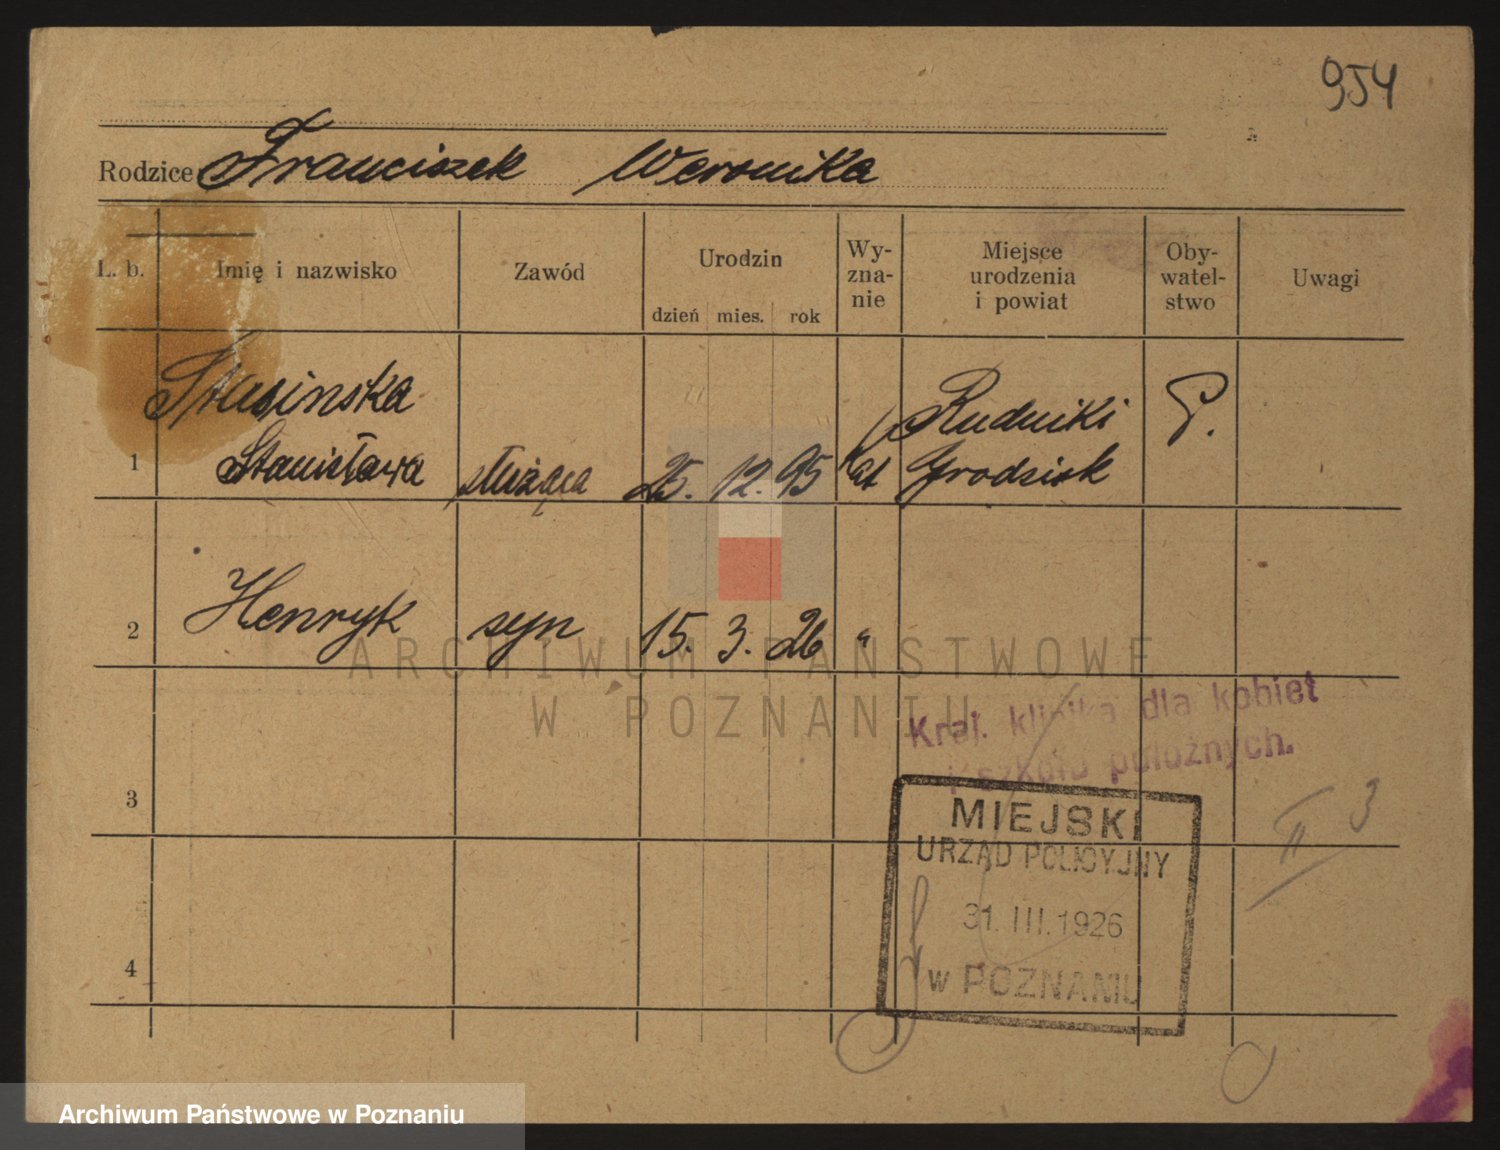 954
Rodzice Franciszek Weronika
L. b. Imię i nazwisko Zawód Urodzin dzień mies. rok Wy-zna-nie Miejsce urodzenia i powiat Oby-watel-stwo Uwagi
Stusinska
1 Stanisława służąca 25. 12. 95 Kat Rudniki Grodzisk P.
2 Henryk syn 15. 3. 26 "
ARCHIWUM PAŃSTWOWE
W POZNANIU
Kraj. klinika dla kobiet
i szkoła położnych.
3
II 3
MIEJSKI
URZĄD POLICYJNY
31. III. 1926
w POZNANIU
4
Archiwum Państwowe w Poznaniu